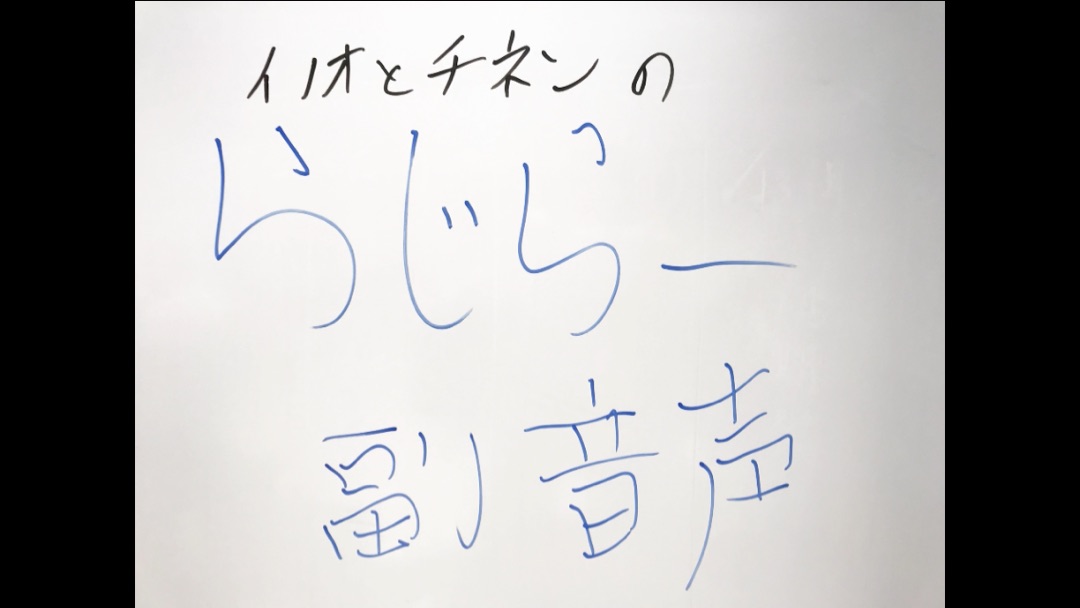 イノオとチネンの
らじらー
副音声